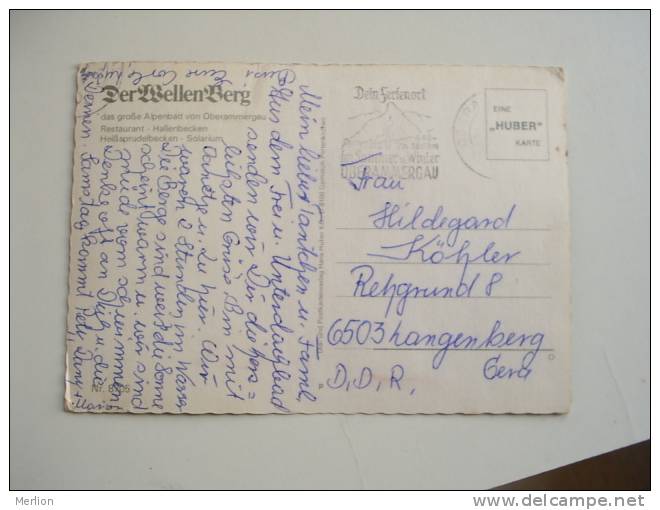 Der Wellen Berg
das große Alpenbad von Oberammergau
Restaurant - Hallenbecken
Heißsprudelbecken - Solarium
Mein liebes Tantchen u. Famil.
Aus dem Frei u. Unterdachbad
senden wir Dir die herz=
lichsten Grüße. Bin mit
u. zu hier. Wir
waren 2 Stunden im Wasser
Die Berge sind weiß die Sonne
scheint warm u. wir sind
müde vom schwimmen
Denke oft an Dich u. die
Deinen. Samstag kommt
Nr. 8205
Dein Ferienort
Sommer u. Winter
OBERAMMERGAU
EINE
„HUBER"
KARTE
Frau
Hildegard
Köhler
Rehgrund 8
6503 Langenberg
Gera
D.D.R.
Merlion
delcampe.net